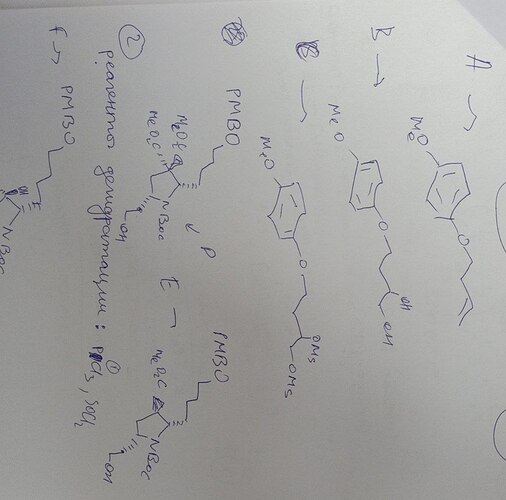 A →
MeO
O
B →
MeO
O
OH
OH
MeO
O
OMs
OMs
PMBO
MeO₂C
NBoc
OH
D
E →
PMBO
MeO₂C
NBoc
OH
②
реагенты дегидратации: ① PCl₃, SOCl₂
F →
PMBO
OH
NBoc